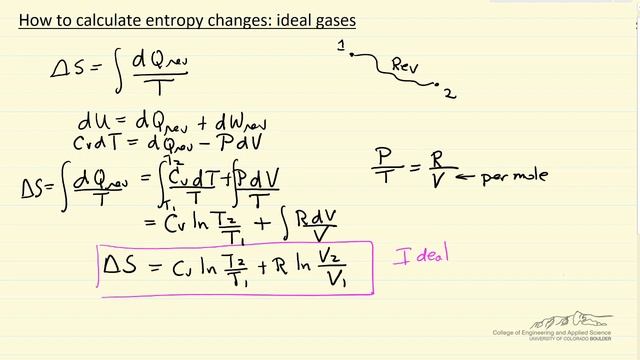 How to calculate entropy changes: ideal gases
ΔS = ∫ dQrev / T
1 Rev 2
dU = dQrev + dWrev
CvdT = dQrev - PdV
ΔS = ∫ dQrev / T = ∫_{T1}^{T2} CvdT / T + ∫ PdV / T
P / T = R / V ← per mole
= Cv ln T2 / T1 + ∫ RdV / V
ΔS = Cv ln T2 / T1 + R ln V2 / V1
Ideal
College of Engineering and Applied Science
UNIVERSITY OF COLORADO BOULDER